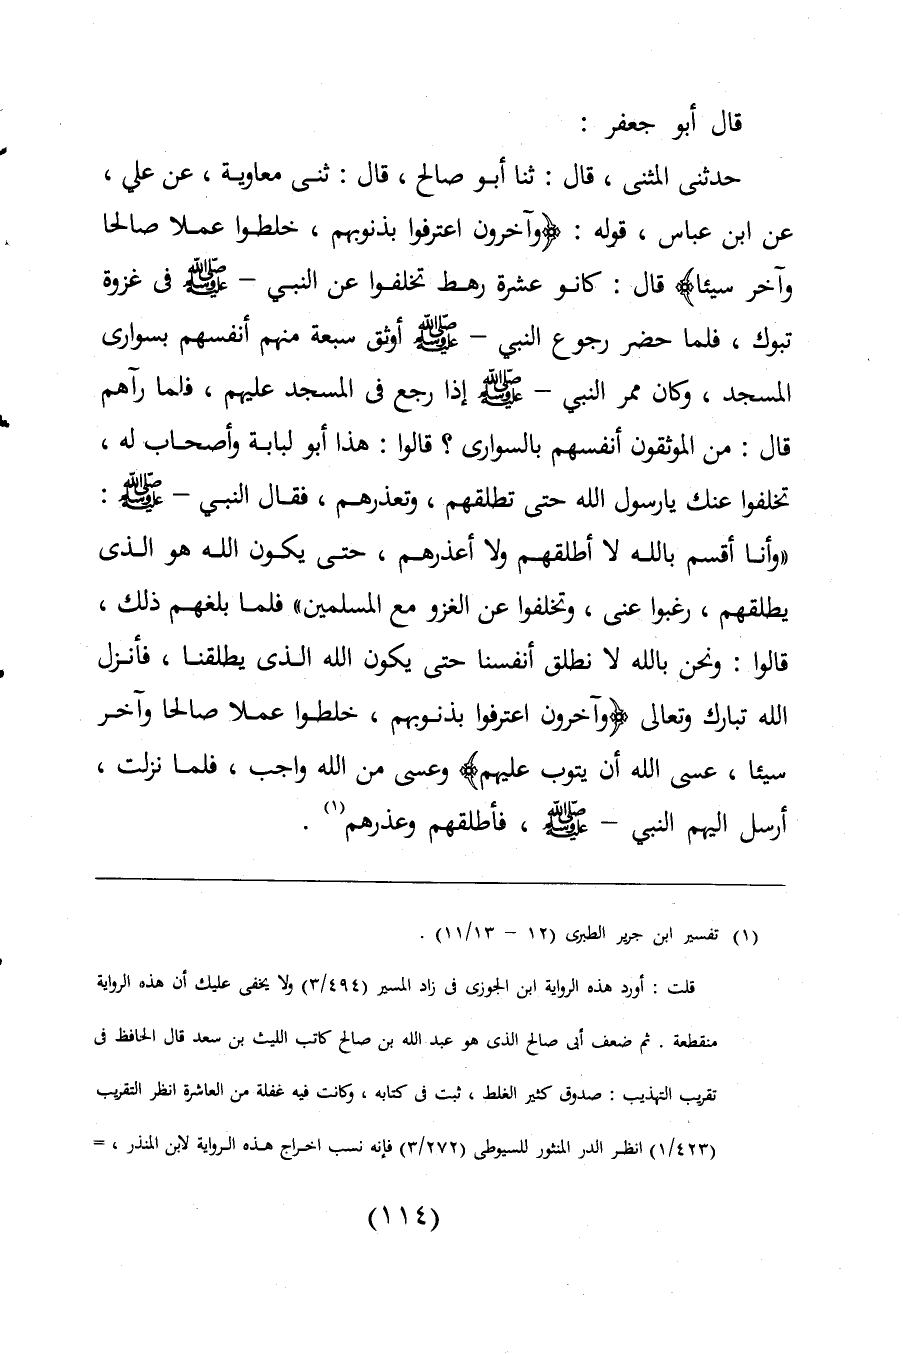 قال أبو جعفر :
حدثنى المثنى ، قال : ثنا أبو صالح ، قال : ثنى معاوية ، عن علي ،
عن ابن عباس ، قوله : ﴿وآخرون اعترفوا بذنوبهم ، خلطوا عملا صالحا
وآخر سيئا﴾ قال : كانو عشرة رهط تخلفوا عن النبي – ﷺ فى غزوة
تبوك ، فلما حضر رجوع النبي – ﷺ أوثق سبعة منهم أنفسهم بسوارى
المسجد ، وكان ممر النبي – ﷺ إذا رجع فى المسجد عليهم ، فلما رآهم
قال : من الموثقون أنفسهم بالسوارى ؟ قالوا : هذا أبو لبابة وأصحاب له ،
تخلفوا عنك يارسول الله حتى تطلقهم ، وتعذرهم ، فقال النبي – ﷺ :
«وأنا أقسم بالله لا أطلقهم ولا أعذرهم ، حتى يكون الله هو الذى
يطلقهم ، رغبوا عنى ، وتخلفوا عن الغزو مع المسلمين» فلما بلغهم ذلك ،
قالوا : ونحن بالله لا نطلق أنفسنا حتى يكون الله الذى يطلقنا ، فأنزل
الله تبارك وتعالى ﴿وآخرون اعترفوا بذنوبهم ، خلطوا عملا صالحا وآخر
سيئا ، عسى الله أن يتوب عليهم﴾ وعسى من الله واجب ، فلما نزلت ،
أرسل اليهم النبي – ﷺ ، فأطلقهم وعذرهم(١) .
(١) تفسير ابن جرير الطبرى (١٢ – ١١/١٣) .
قلت : أورد هذه الرواية ابن الجوزى فى زاد المسير (٣/٤٩٤) ولا يخفى عليك أن هذه الرواية
منقطعة . ثم ضعف أبى صالح الذى هو عبد الله بن صالح كاتب الليث بن سعد قال الحافظ فى
تقريب التهذيب : صدوق كثير الغلط ، ثبت فى كتابه ، وكانت فيه غفلة من العاشرة انظر التقريب
(١/٤٢٣) انظر الدر المنثور للسيوطى (٣/٢٧٢) فإنه نسب اخراج هذه الرواية لابن المنذر ، =
(١١٤)